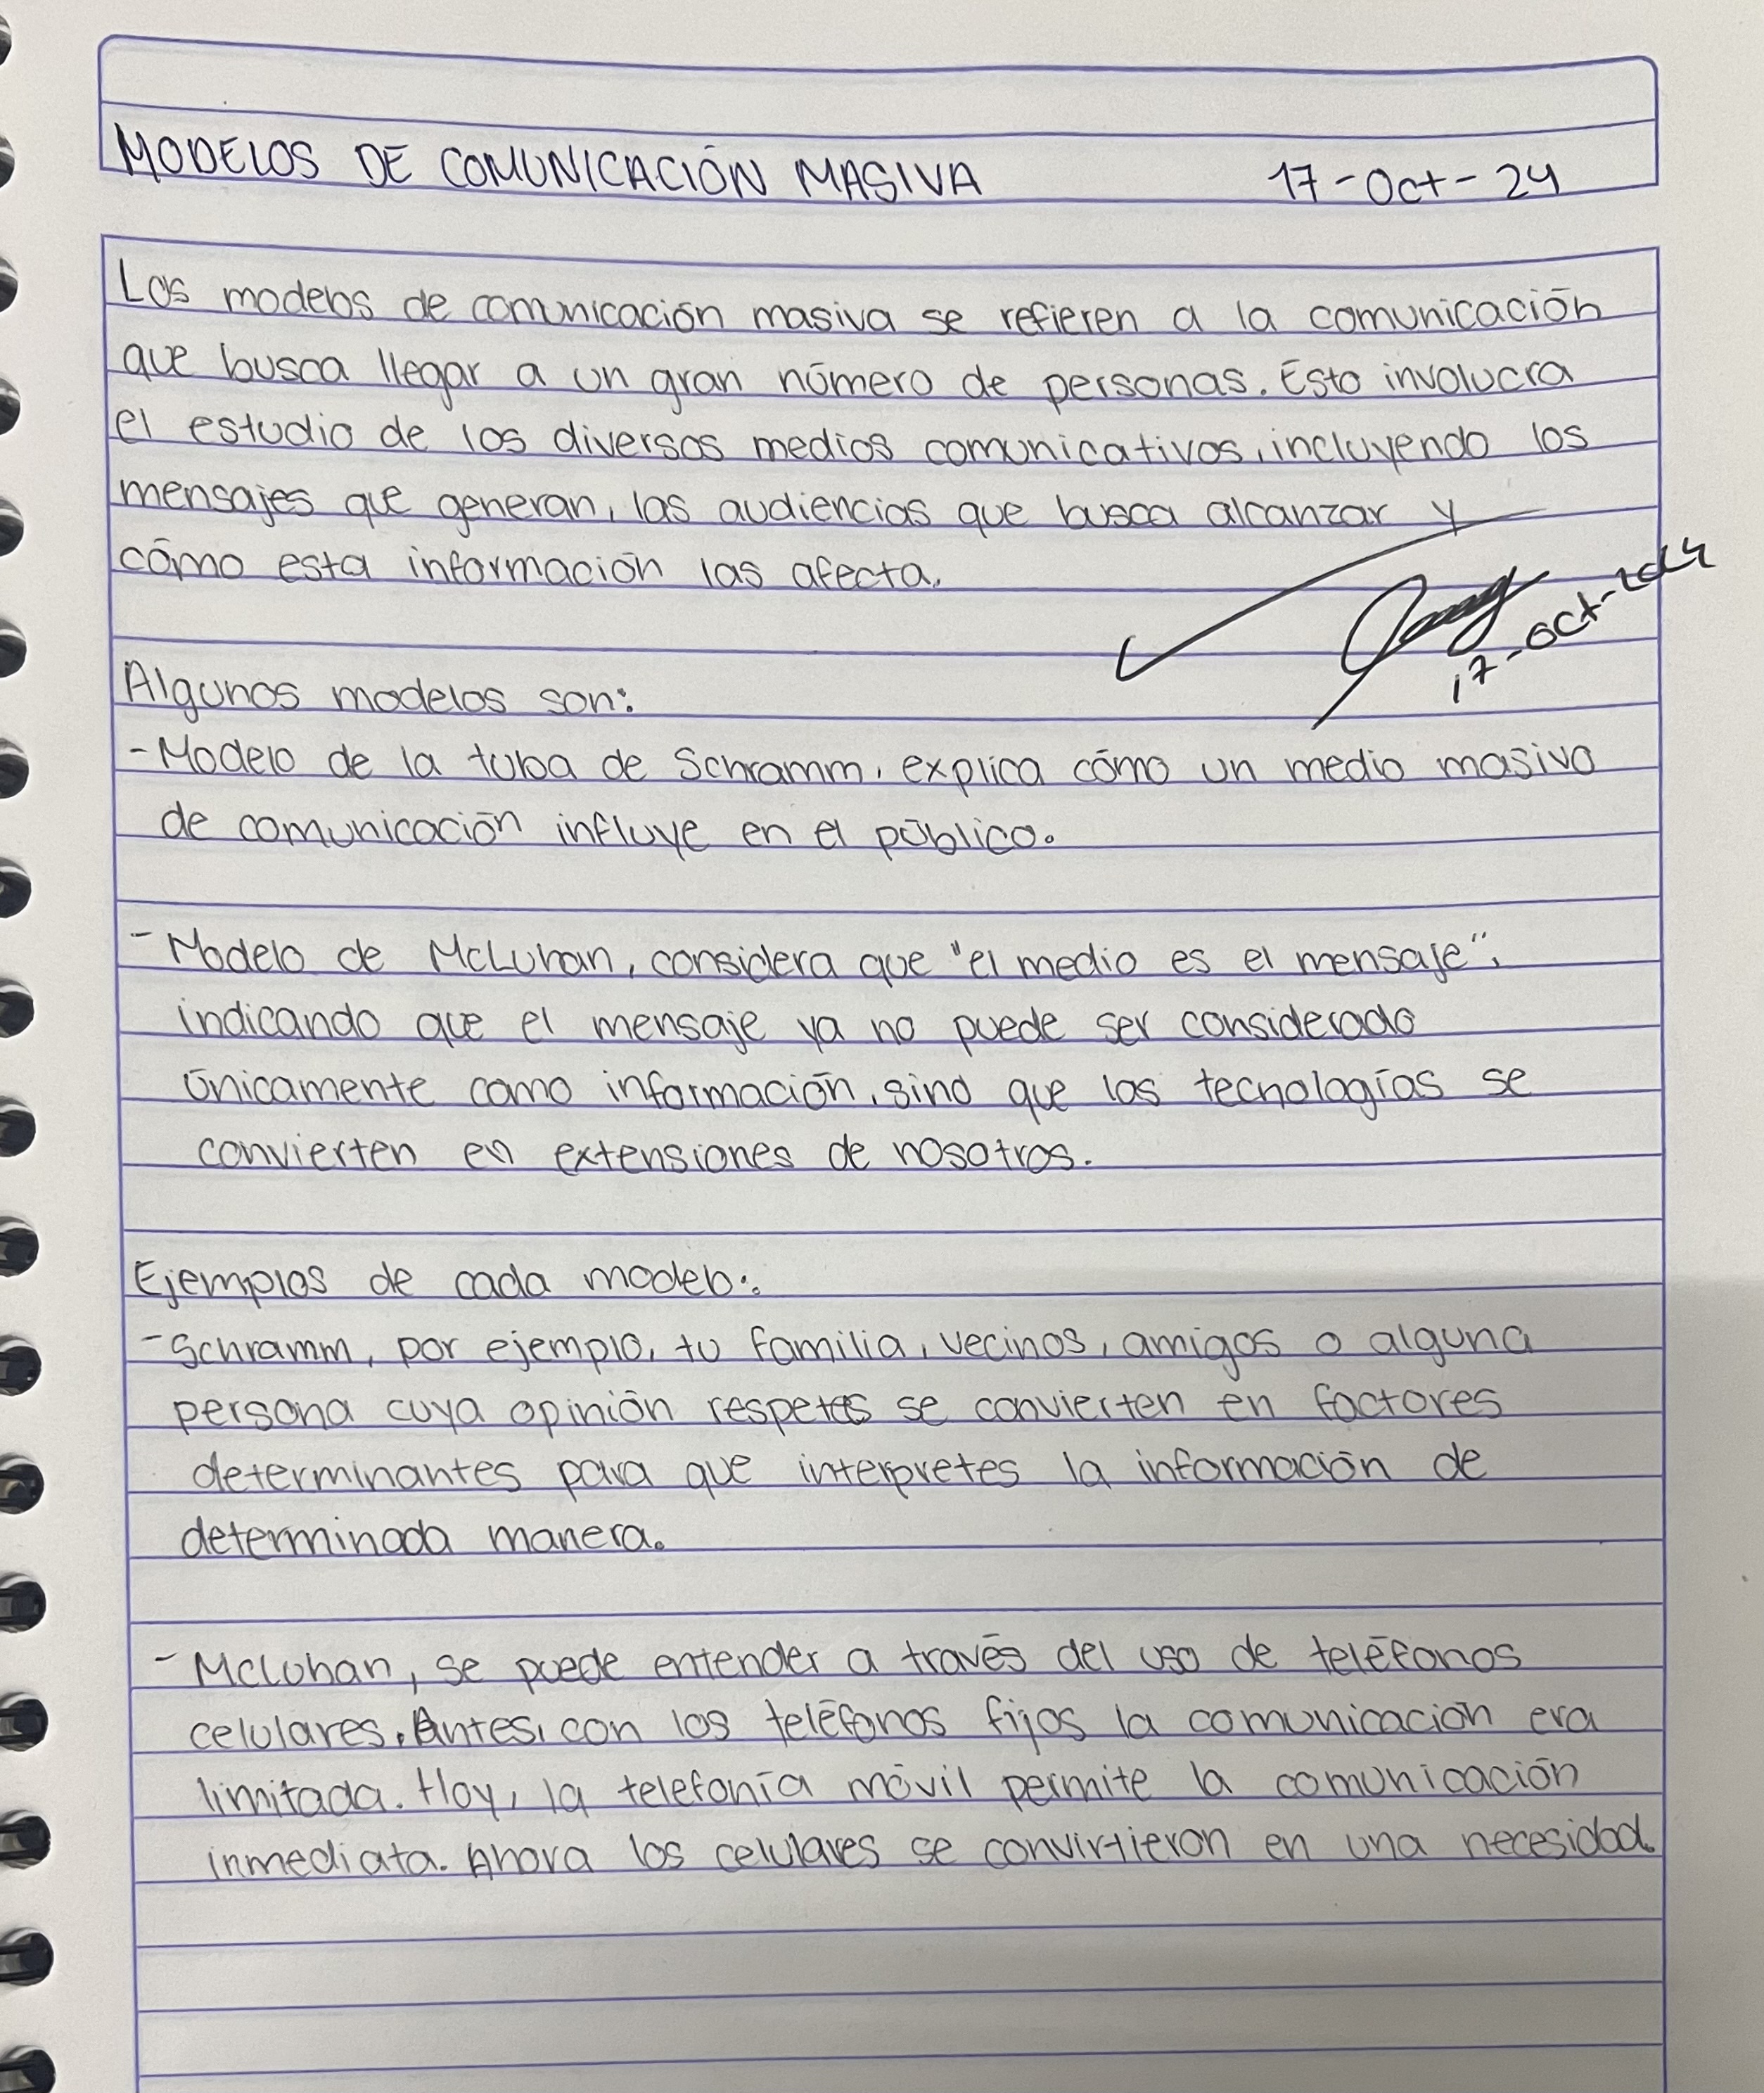 MODELOS DE COMUNICACIÓN MASIVA 17-Oct-24
Los modelos de comunicación masiva se refieren a la comunicación
que busca llegar a un gran número de personas. Esto involucra
el estudio de los diversos medios comunicativos, incluyendo los
mensajes que generan, las audiencias que busca alcanzar y
cómo esta información las afecta.
17-oct-2024
Algunos modelos son:
- Modelo de la tuba de Schramm, explica cómo un medio masivo
de comunicación influye en el público.
- Modelo de McLuhan, considera que "el medio es el mensaje",
indicando que el mensaje ya no puede ser considerado
únicamente como información, sino que las tecnologías se
convierten en extensiones de nosotros.
Ejemplos de cada modelo:
- Schramm, por ejemplo, tu familia, vecinos, amigos o alguna
persona cuya opinión respetes se convierten en factores
determinantes para que interpretes la información de
determinada manera.
- McLuhan, se puede entender a través del uso de teléfonos
celulares. Antes, con los teléfonos fijos la comunicación era
limitada. Hoy, la telefonía móvil permite la comunicación
inmediata. Ahora los celulares se convirtieron en una necesidad.